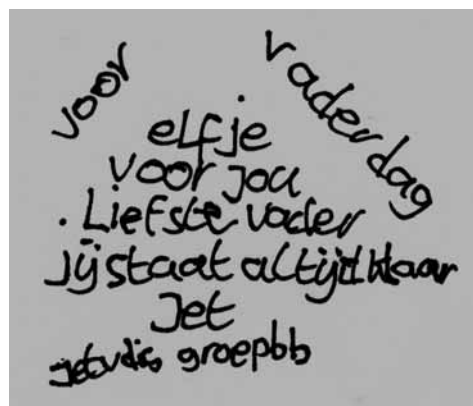 voor vaderdag
elfje
voor jou
. Liefste vader
jij staat altijd klaar
Jet
groep bb